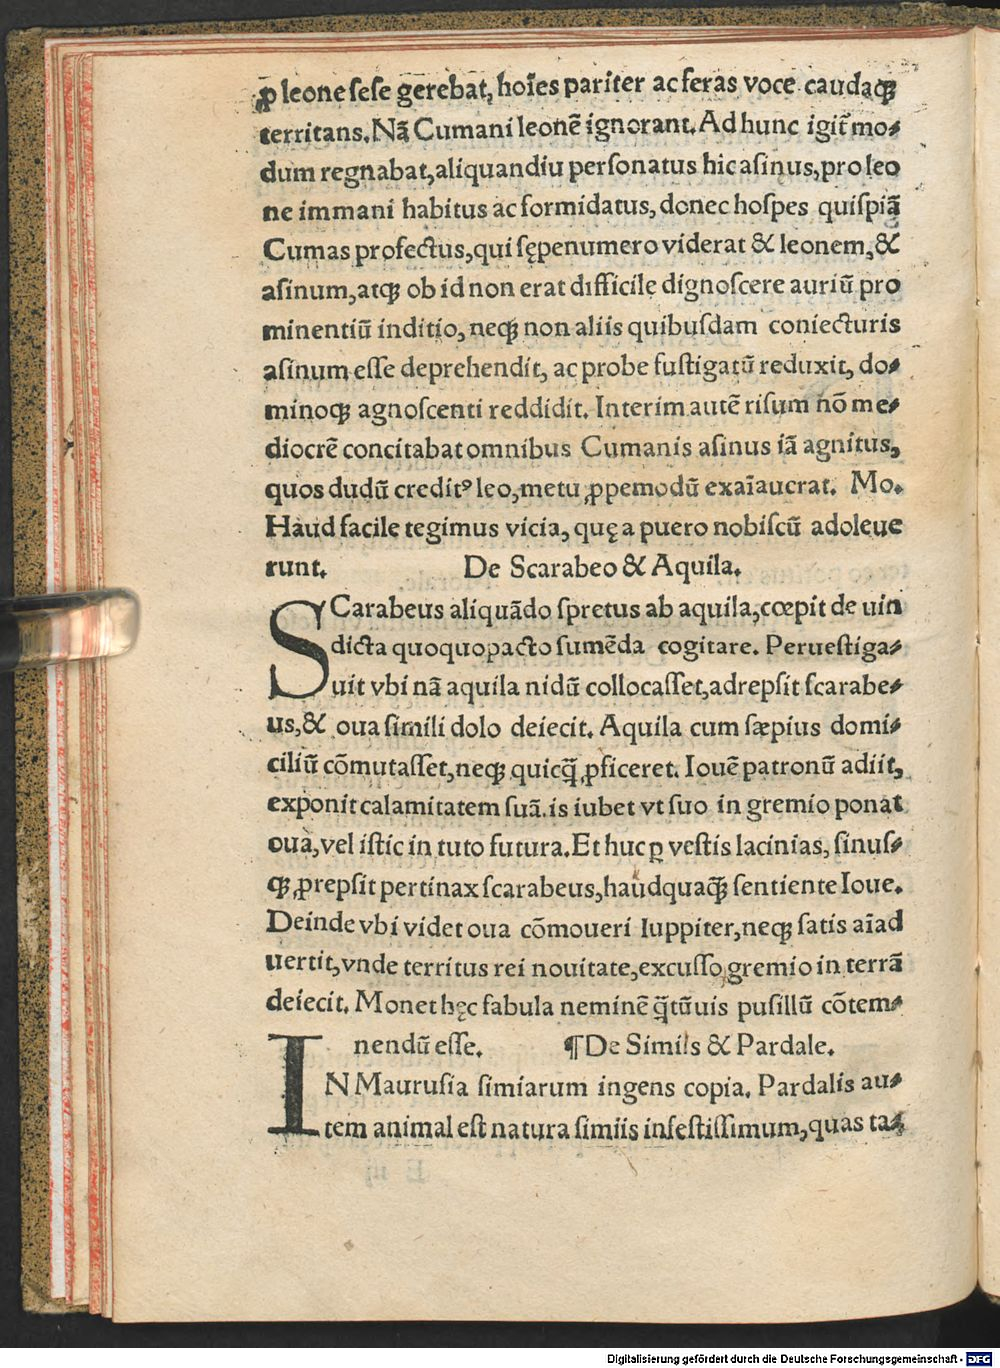 ꝓ leone sese gerebat, hoı̃es pariter ac feras voce caudaqꝫ
territans. Nã Cumani leonẽ ignorant. Ad hunc igit᷑ mo⸗
dum regnabat, aliquandiu personatus hic asinus, pro leo
ne immani habitus ac formidatus, donec hospes quispiã
Cumas profectus, qui sępenumero viderat & leonem, &
asinum, atqꝫ ob id non erat difficile dignoscere auriũ pro
minentiũ inditio, neqꝫ non aliis quibusdam coniecturis
asinum esse deprehendit, ac probe fustigatũ reduxit, do⸗
minoqꝫ agnoscenti reddidit. Interim autẽ risum nõ me⸗
diocrẽ concitabat omnibus Cumanis asinus iã agnitus,
quos dudũ creditꝰ leo, metu ꝓpemodũ exaı̃auerat. Mo.
Haud facile tegimus vicia, quę a puero nobiscũ adoleue
runt. De Scarabeo & Aquila.
SCarabeus aliquãdo spretus ab aquila, cœpit de uin
dicta quoquopacto sumẽda cogitare. Peruestiga⸗
uit vbi nã aquila nidũ collocasset, adrepsit scarabe⸗
us, & oua simili dolo deiecit. Aquila cum sæpius domi⸗
ciliũ cõmutasset, neqꝫ quicq̃ ꝓficeret. Iouẽ patronũ adiit,
exponit calamitatem suã. is iubet vt suo in gremio ponat
oua, vel istic in tuto futura. Et huc ꝑ vestis lacinias, sinus⸗
qꝫ ꝓrepsit pertinax scarabeus, haudquaqꝫ̃ sentiente Ioue.
Deinde vbi videt oua cõmoueri Iuppiter, neqꝫ satis aı̃ad
uertit, vnde territus rei nouitate, excusso gremio in terrã
deiecit. Monet hęc fabula neminẽ q̃tũuis pusillũ cõtem⸗
nendũ esse. ¶De Simiis & Pardale.
IN Maurusia simiarum ingens copia. Pardalis au⸗
tem animal est natura simiis infestissimum, quas ta⸗
Digitalisierung gefördert durch die Deutsche Forschungsgemeinschaft - DFG